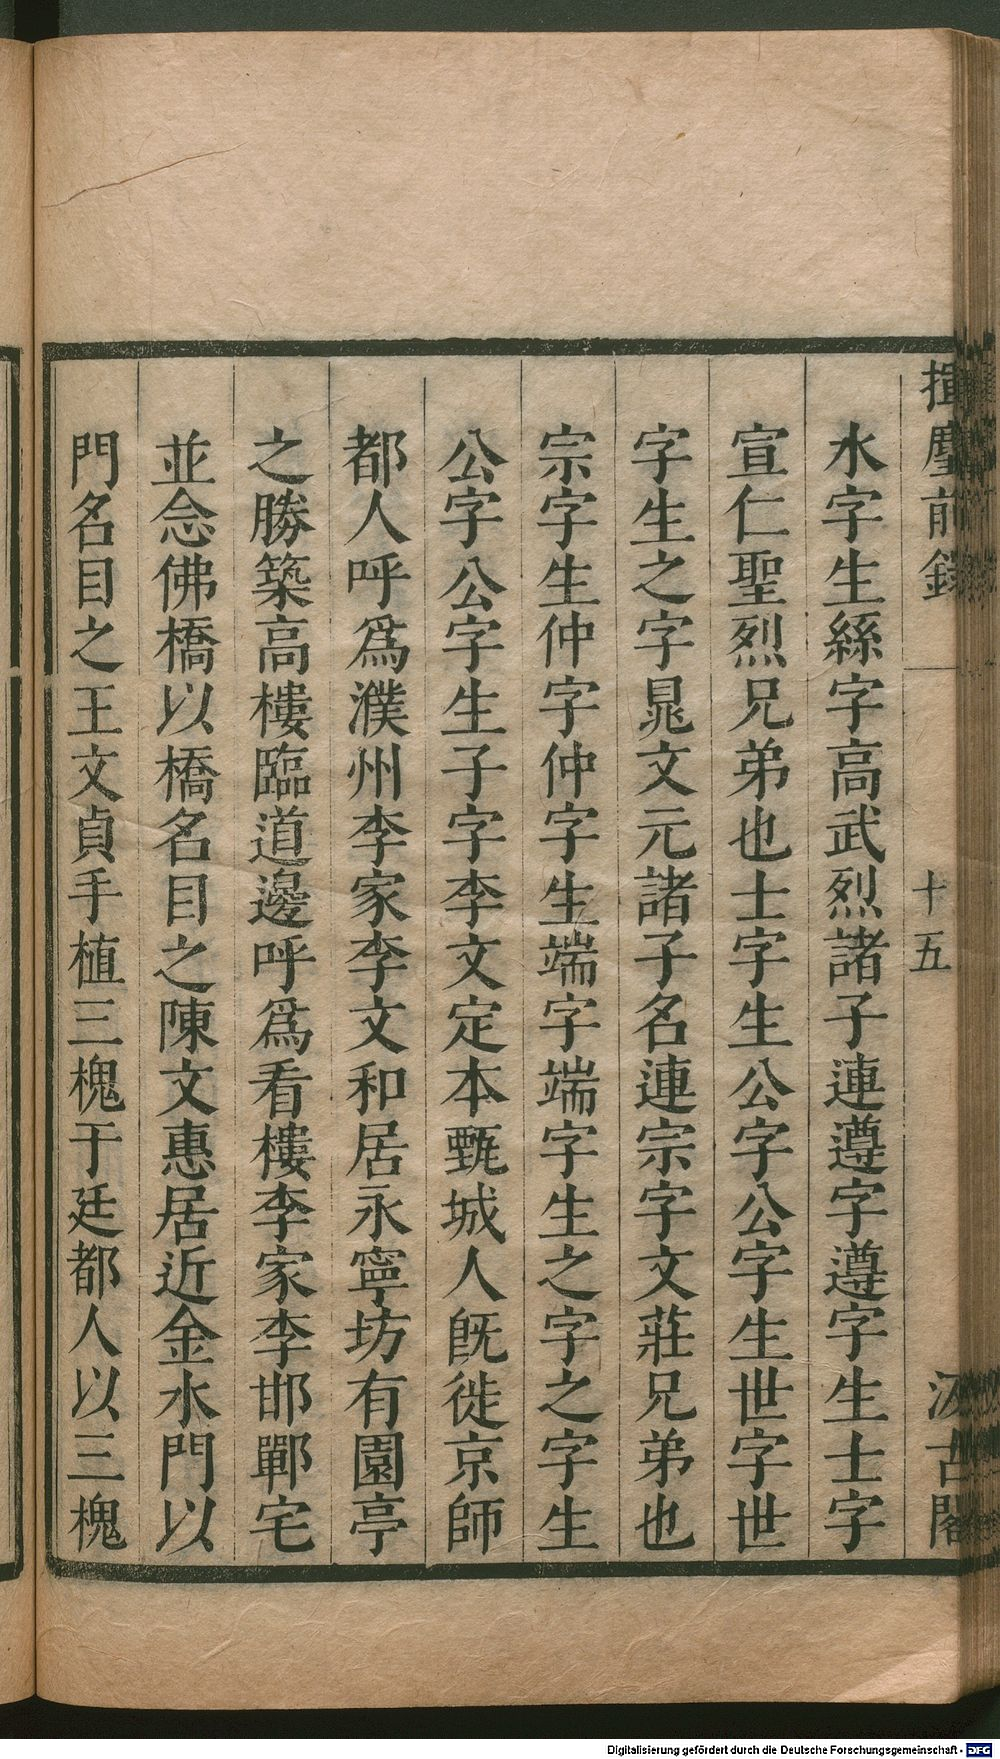 揮麈前錄
十五
汲古閣
水字生絲字高武烈諸子連遵字遵字生士字
宣仁聖烈兄弟也士字生公字公字生世字世
字生之字晁文元諸子名連宗字文莊兄弟也
宗字生仲字仲字生端字端字生之字之字生
公字公字生子字李文定本甄城人旣徙京師
都人呼爲濮州李家李文和居永寧坊有園亭
之勝築高樓臨道邊呼爲看樓李家李邯鄲宅
並念佛橋以橋名目之陳文惠居近金水門以
門名目之王文貞手植三槐于廷都人以三槐
Digitalisierung gefördert durch die Deutsche Forschungsgemeinschaft - DFG